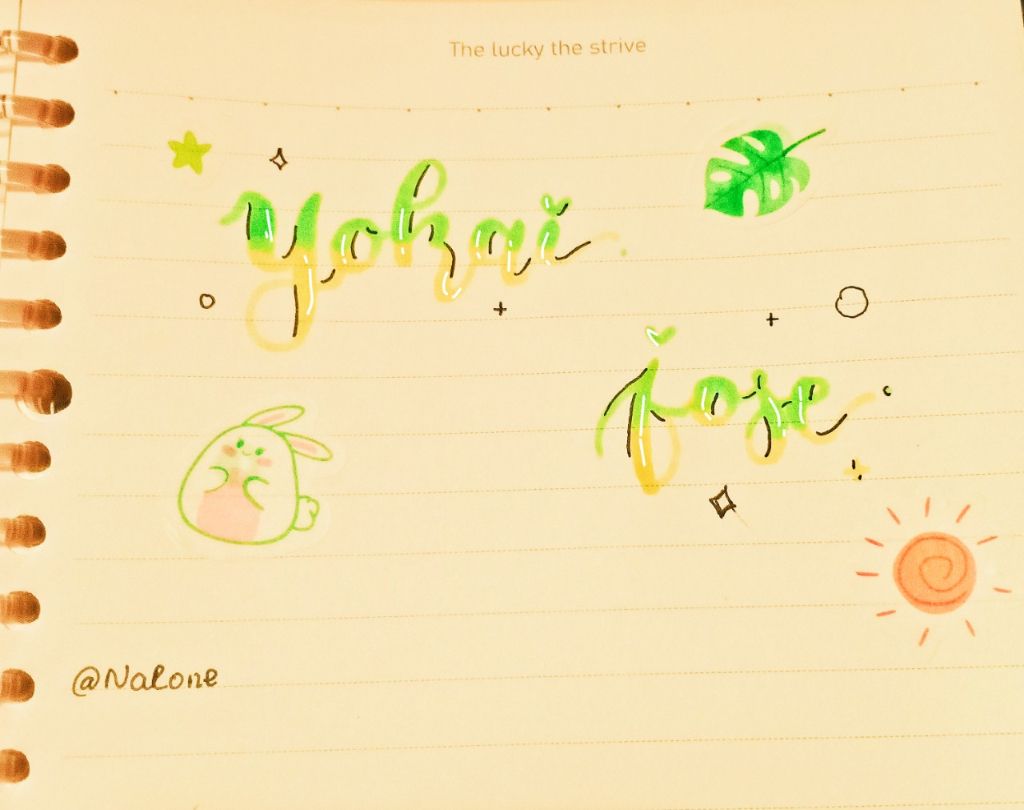 The lucky the strive
Yohai
jose
@Nalone